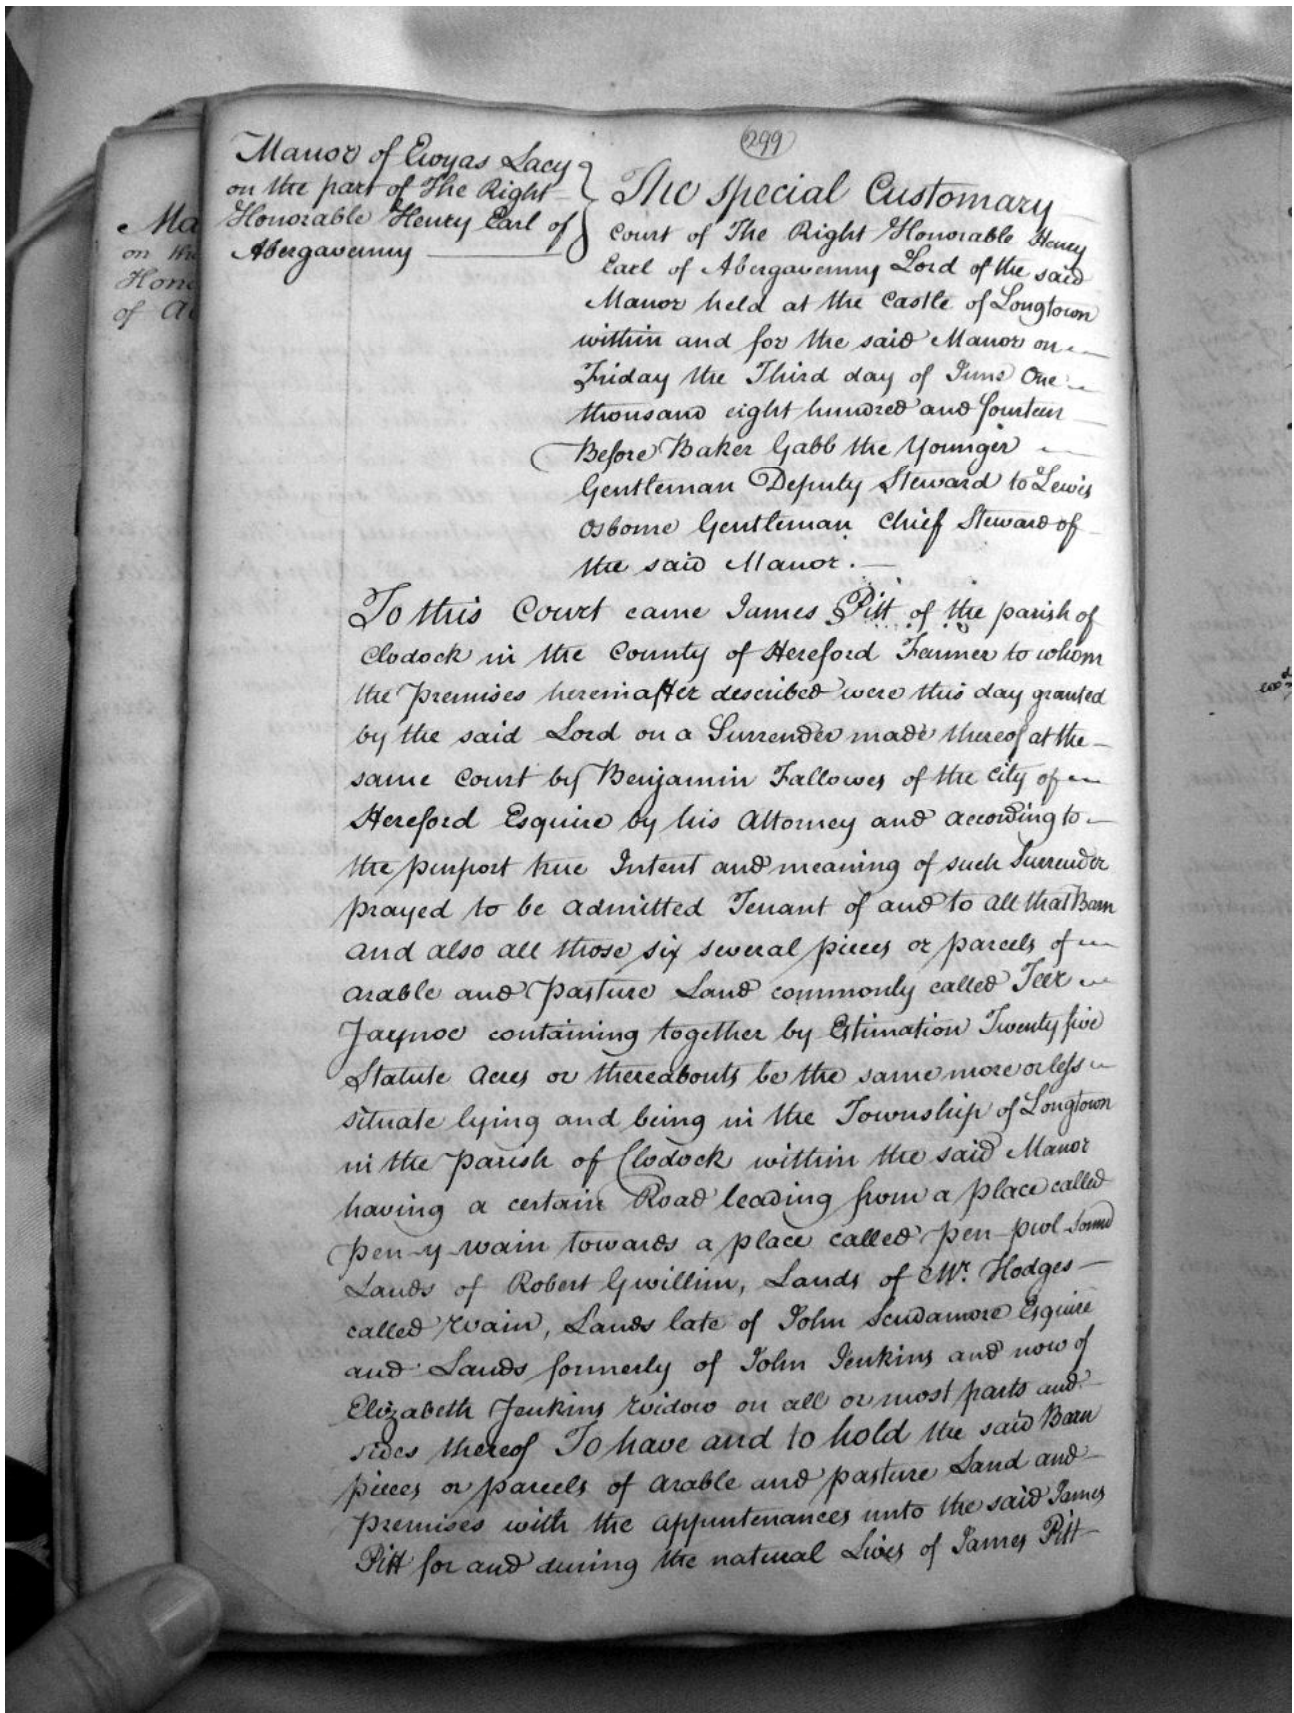 299
Manor of Ewyas Lacy
on the part of The Right
Honorable Henry Earl of
Abergavenny
The Special Customary
Court of The Right Honorable Henry
Earl of Abergavenny Lord of the said
Manor held at the Castle of Longtown
within and for the said Manor on
Friday the Third day of June One
thousand eight hundred and fourteen
Before Baker Gabb the Younger
Gentleman Deputy Steward to Lewis
Osborne Gentleman Chief Steward of
the said Manor.
To this Court came James Pitt of the parish of
Clodock in the County of Hereford Farmer to whom
the Premises hereinafter described were this day granted
by the said Lord on a Surrender made thereof at the
same Court by Benjamin Fallowes of the City of
Hereford Esquire by his Attorney and according to
the purport true Intent and meaning of such Surrender
prayed to be admitted Tenant of and to all that Barn
and also all those six several pieces or parcels of
arable and Pasture Land commonly called Teer
Jaynoc containing together by Estimation Twenty five
Statute Acres or thereabouts be the same more or less
situate lying and being in the Township of Longtown
in the Parish of Clodock within the said Manor
having a certain Road leading from a place called
Pen-y-wain towards a place called Pen-pwl
Lands of Robert Gwillim, Lands of Mr. Hodges
called Wain, Lands late of John Scudamore Esquire
and Lands formerly of John Jenkins and now of
Elizabeth Jenkins Widow on all or most parts and
sides thereof To have and to hold the said Barn
pieces or parcels of arable and pasture Land and
premises with the appurtenances unto the said James
Pitt for and during the natural Lives of James Pitt
Ma
on the
Hono
of A